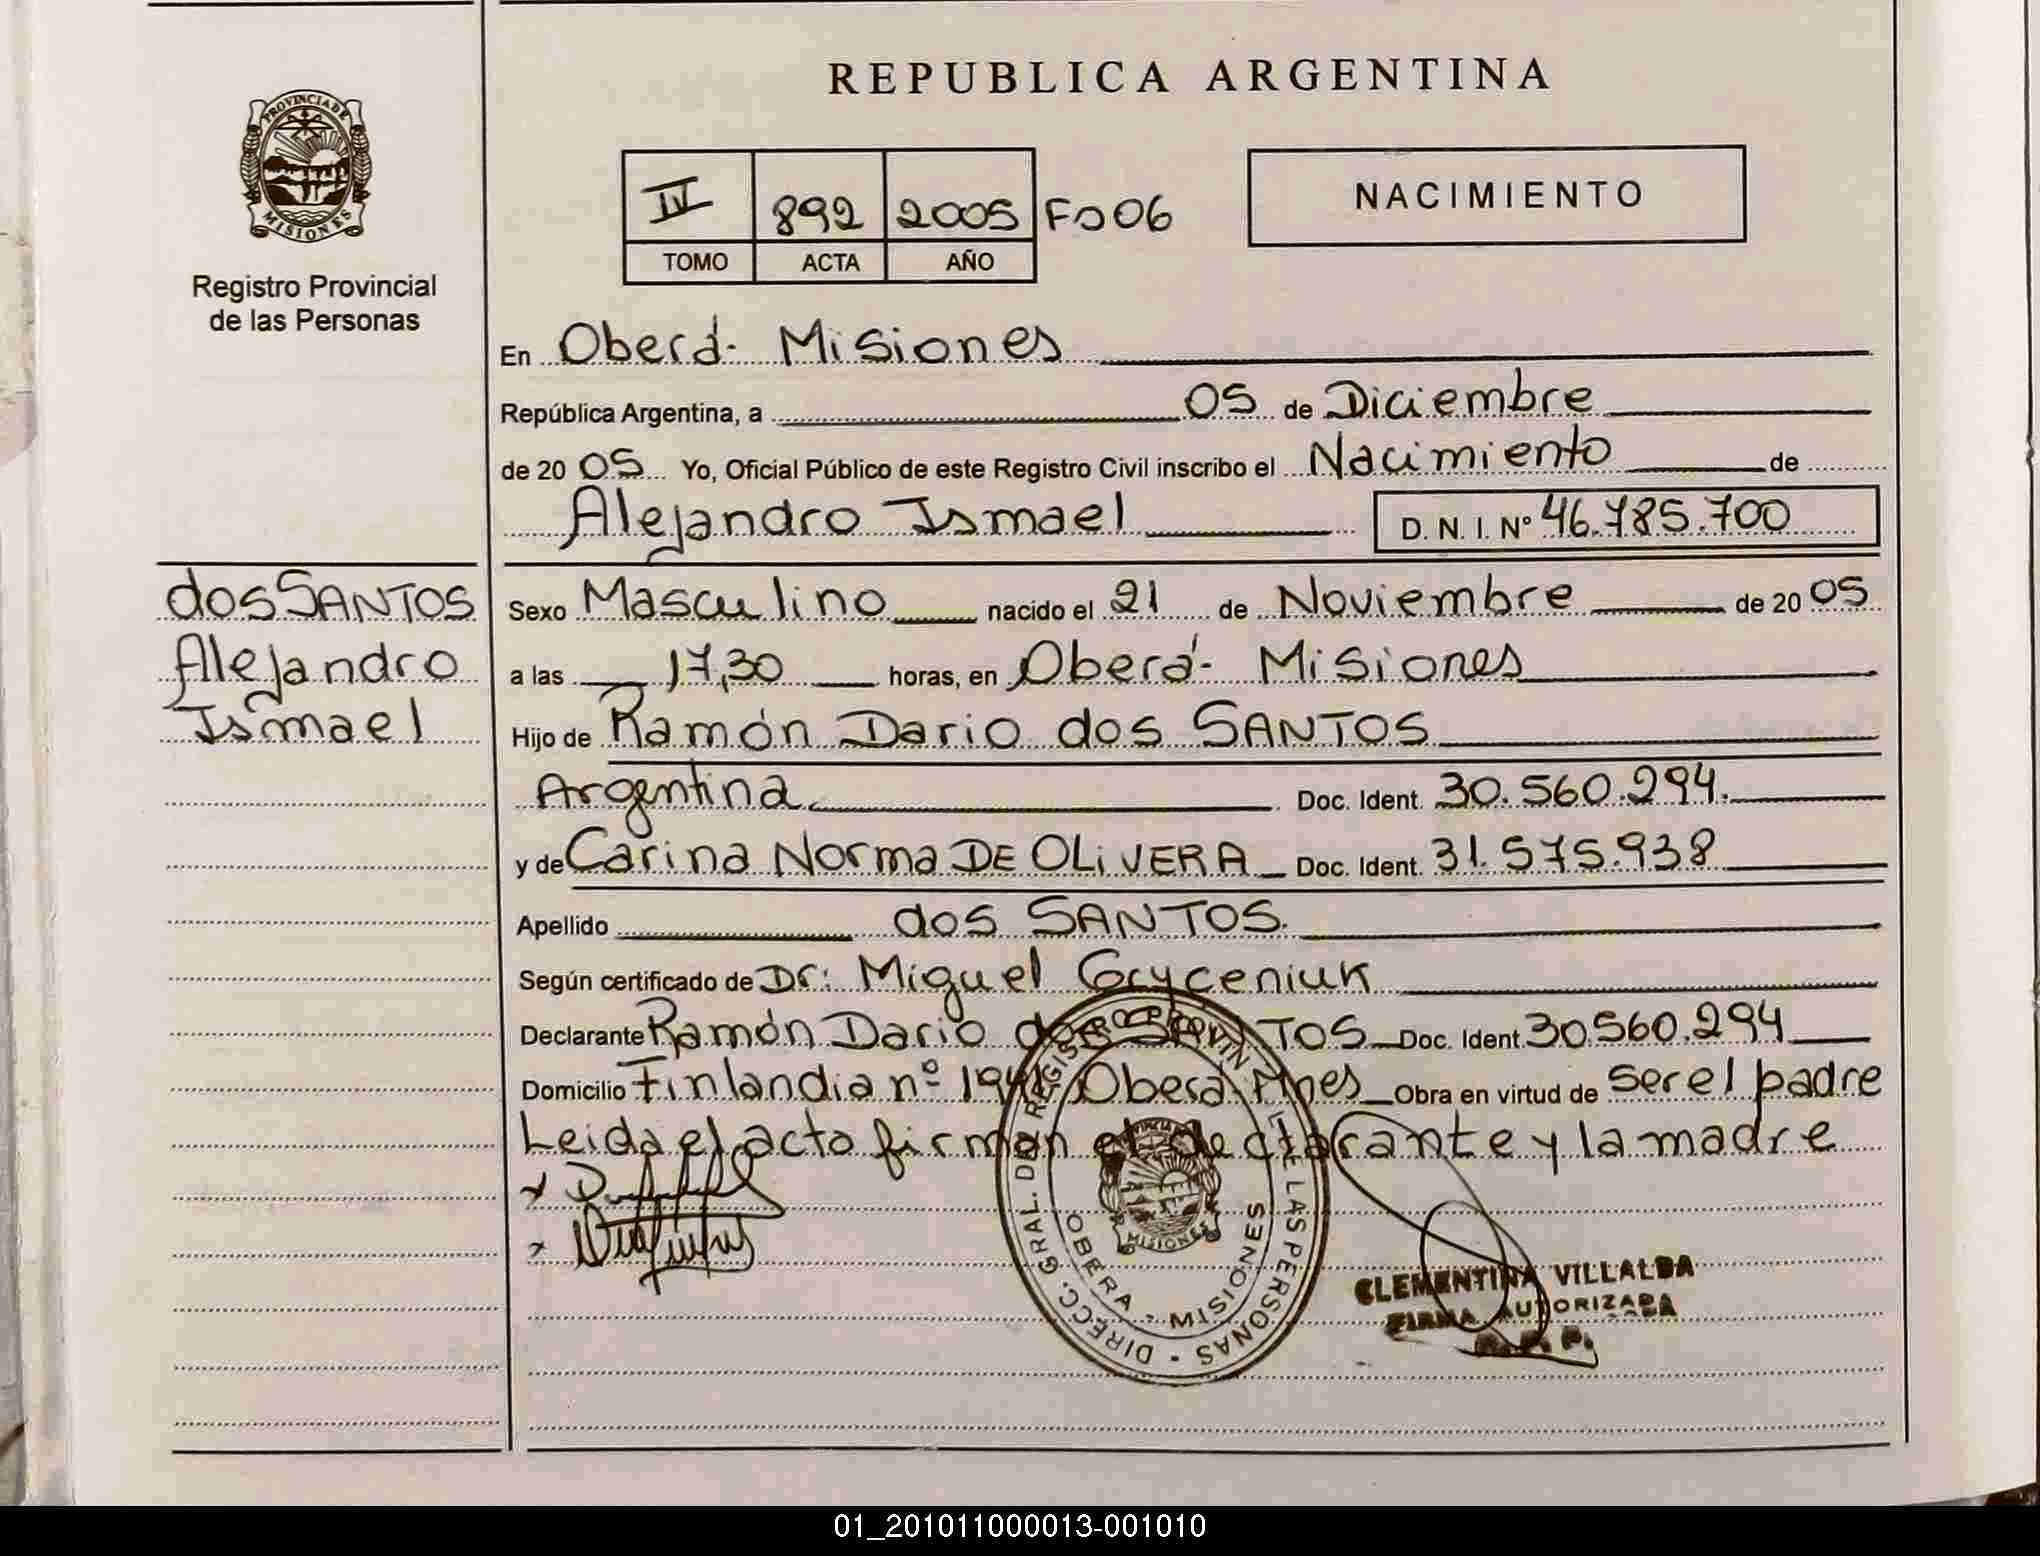 REPUBLICA ARGENTINA
PROVINCIA DE
MISIONES
Registro Provincial
de las Personas
IV 892 2005 Fo 06
TOMO ACTA AÑO
NACIMIENTO
En Oberá- Misiones
República Argentina, a 05 de Diciembre
de 20 05 Yo, Oficial Público de este Registro Civil inscribo el Nacimiento de
Alejandro Ismael D. N. I. Nº 46.785.700
dos SANTOS
Alejandro
Ismael
Sexo Masculino nacido el 21 de Noviembre de 20 05
a las 17,30 horas, en Oberá- Misiones
Hijo de Ramón Dario dos SANTOS
Argentina Doc. Ident. 30.560.294.
y de Carina Norma DE OLiVERA Doc. Ident. 31.575.938
Apellido dos SANTOS.
Según certificado de Dr: Miguel Gryceniuk
Declarante Ramón Dario dos SANTOS Doc. Ident. 30560.294
Domicilio Finlandia nº Oberá Mnes Obra en virtud de ser el padre
Leida el acto firman el declarante y la madre
DIRECC. GRAL. DE REGISTRO PROVINCIAL DE LAS PERSONAS
OBERA - MISIONES
MISIONES
CLEMENTINA VILLALBA
FIRMA AUTORIZADA
R. P. P.
01_201011000013-001010